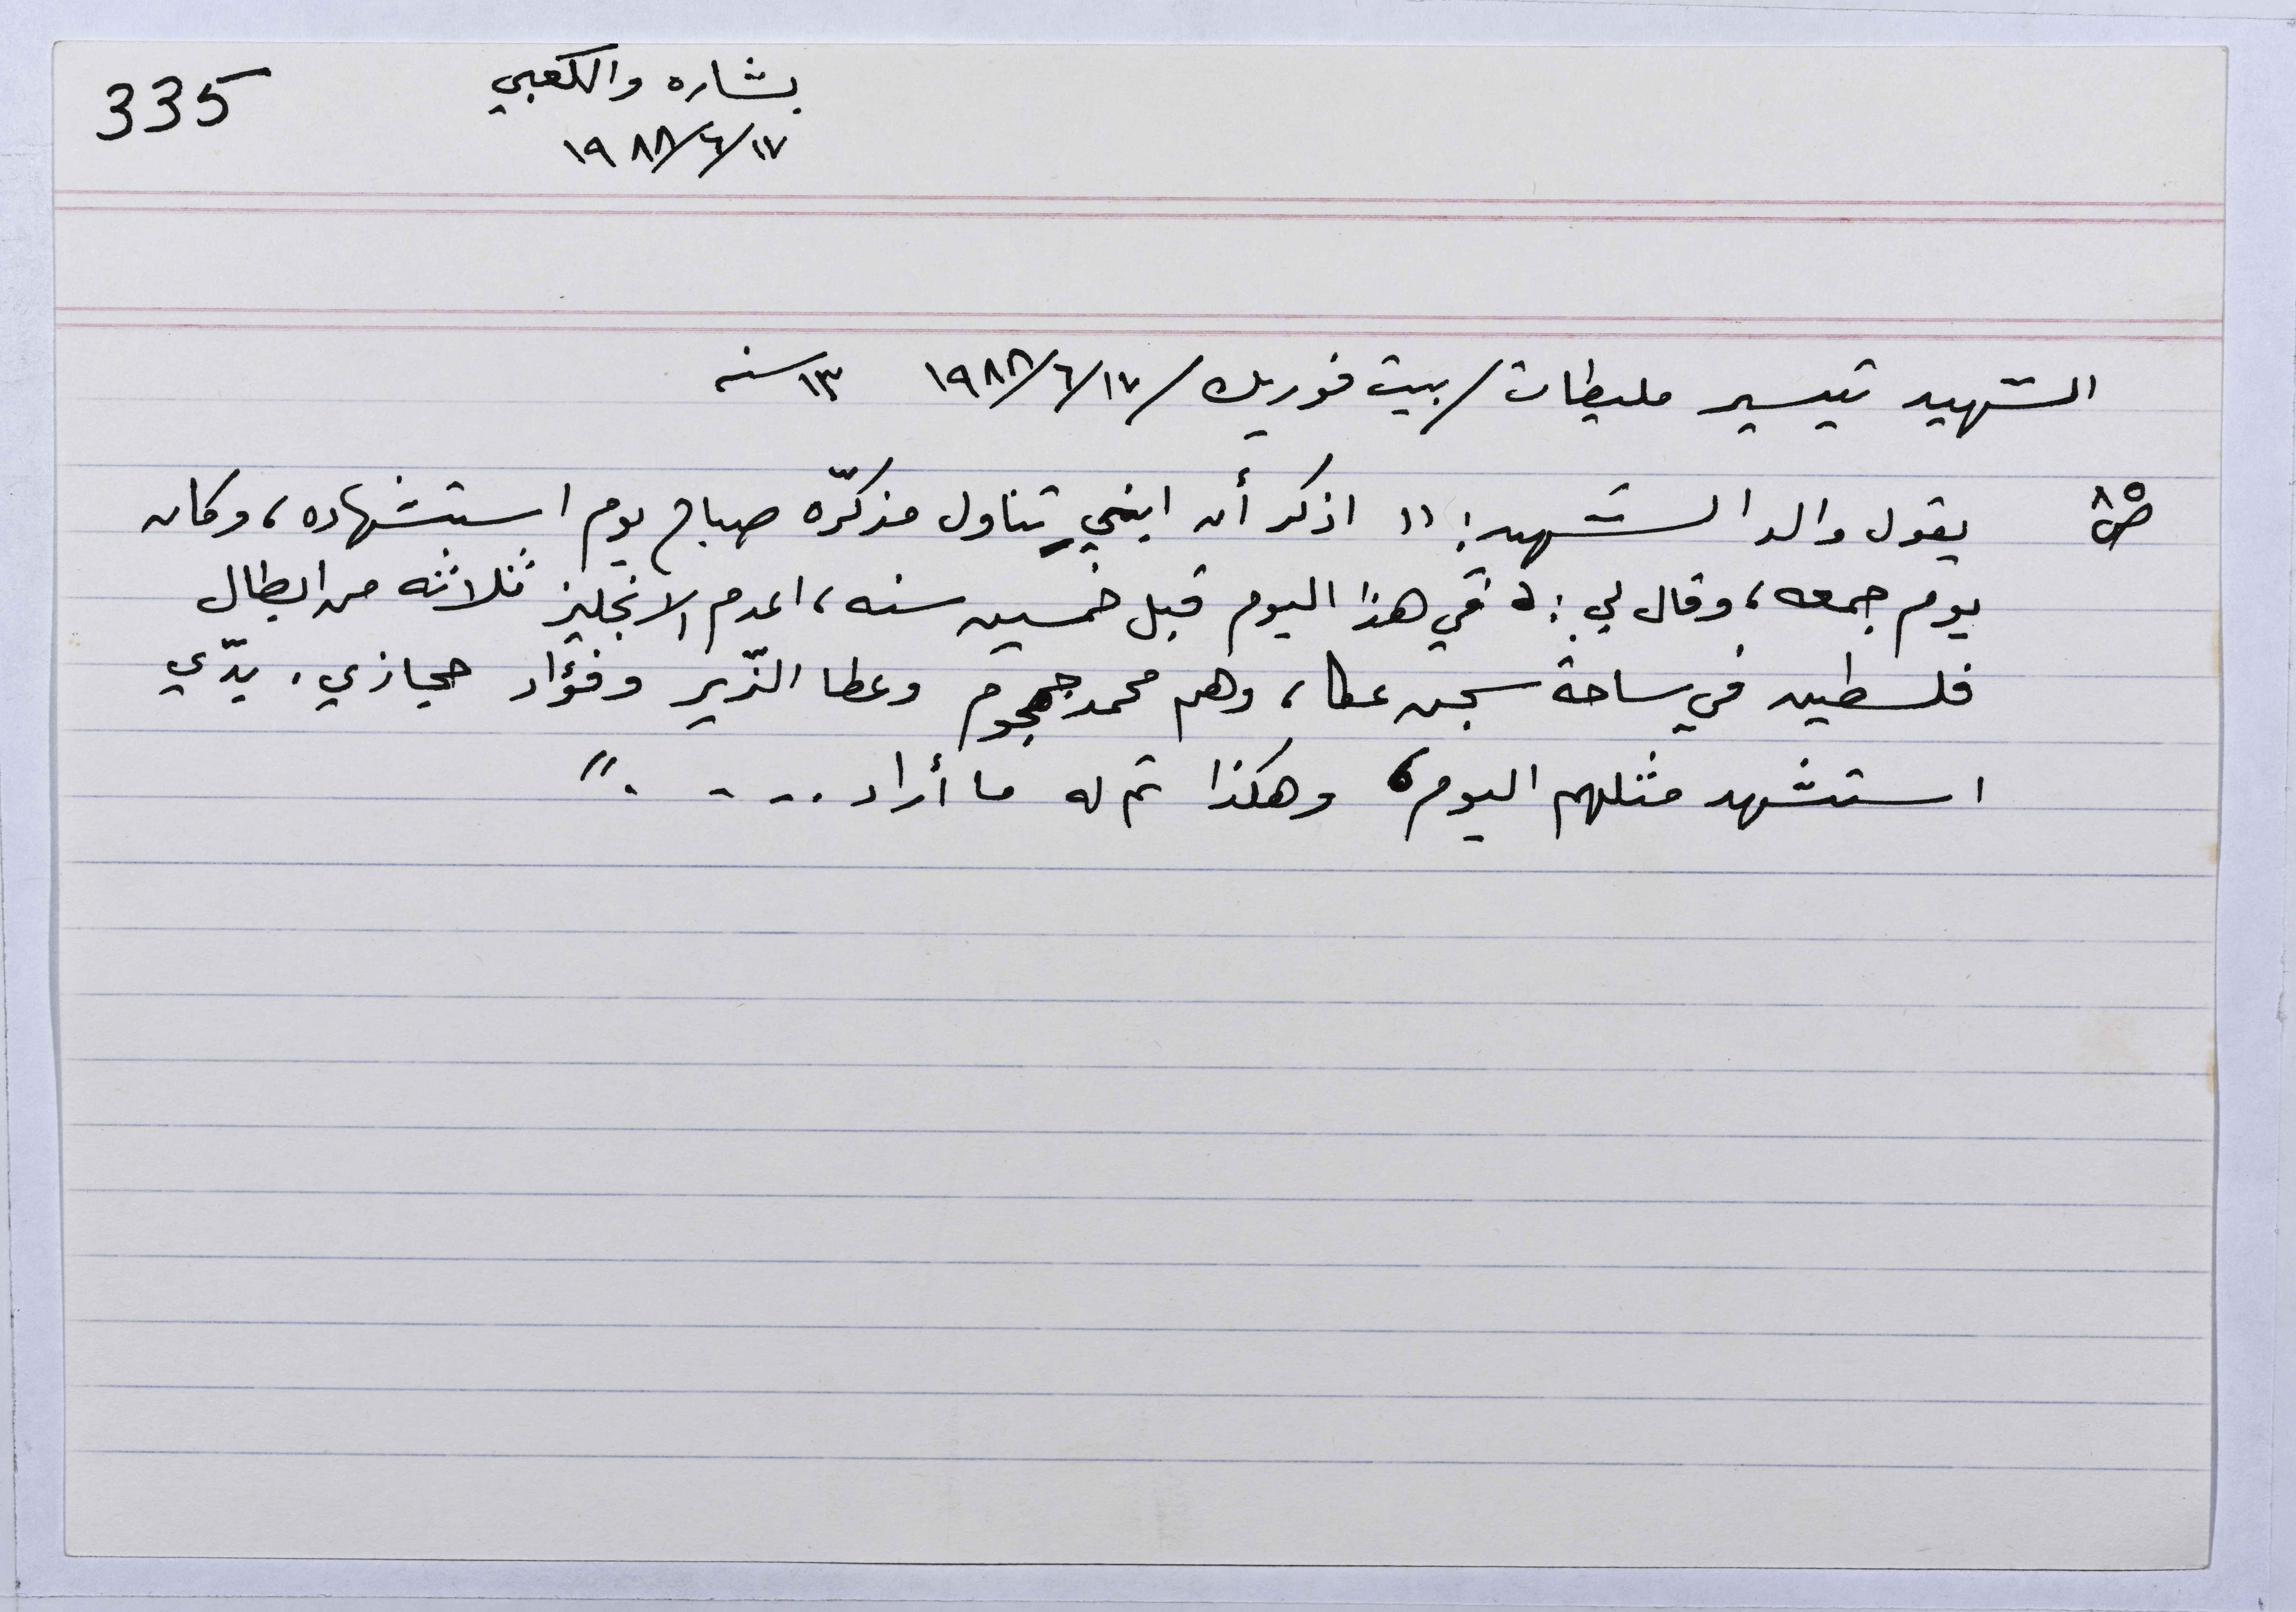 335
بشاره والكعبي
١٧/٦/١٩٨٨
الشهيد تيسير مليطات/بيت فوريك/١٧/٦/١٩٨٨ ١٣ سنه
ص٨ يقول والد الشهيد: "اذكر أن ابني تناول مذكّره صباح يوم استشهاده، وكان
يوم جمعه، وقال لي: في هذا اليوم قبل خمسين سنه، اعدم الانجليز ثلاثه من ابطال
فلسطين في ساحة سجن عكا، وهم محمد جمجوم وعطا الزّير وفؤاد حجازي. بدّي
استشهد مثلهم اليوم، وهكذا تم له ما أراد....."